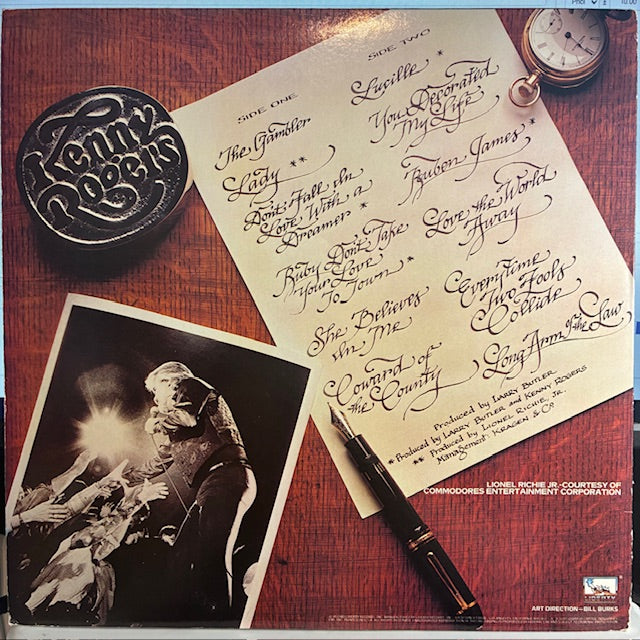 Kenny
Rogers
SIDE ONE
The Gambler
Lady **
Don't Fall In
Love With a
Dreamer *
Ruby Don't Take
Your Love
To Town *
She Believes
In Me
Coward of
the County
SIDE TWO
Lucille *
You Decorated
My Life
Ruben James *
Love the World
Away
Everytime
Two Fools
Collide
Long Arm of the Law
Produced by LARRY BUTLER
* Produced by LARRY BUTLER and KENNY ROGERS
** Produced by LIONEL RICHIE, JR.
Management: KRAGEN & CO
LIONEL RICHIE JR.-COURTESY OF
COMMODORES ENTERTAINMENT CORPORATION
LIBERTY
ART DIRECTION—BILL BURKS